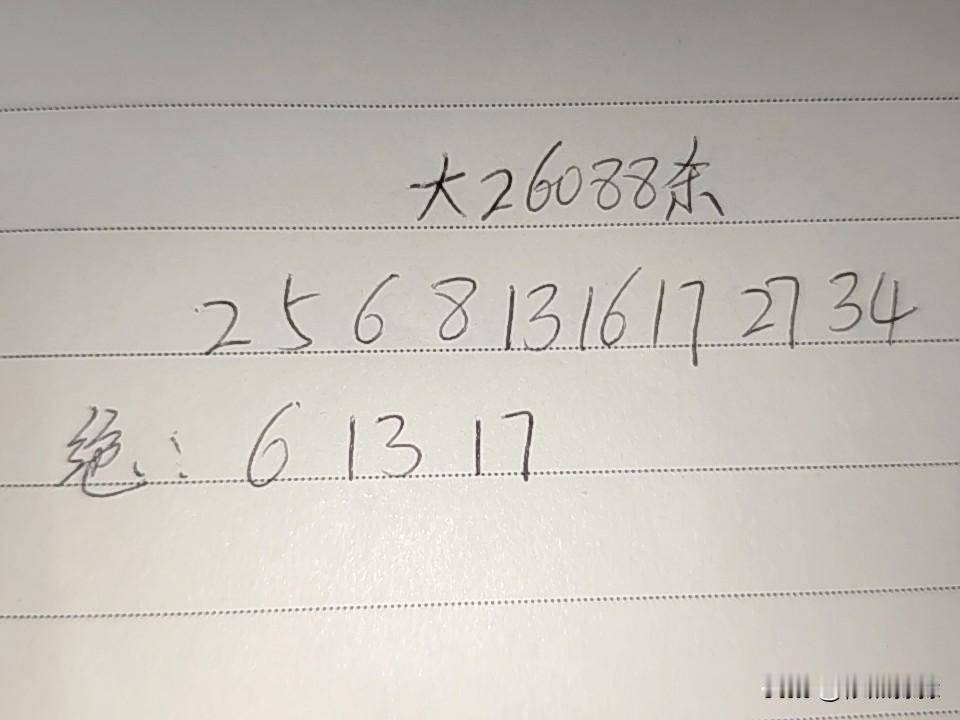 大26088杀
2 5 6 8 13 16 17 27 34
绝: 6 13 17